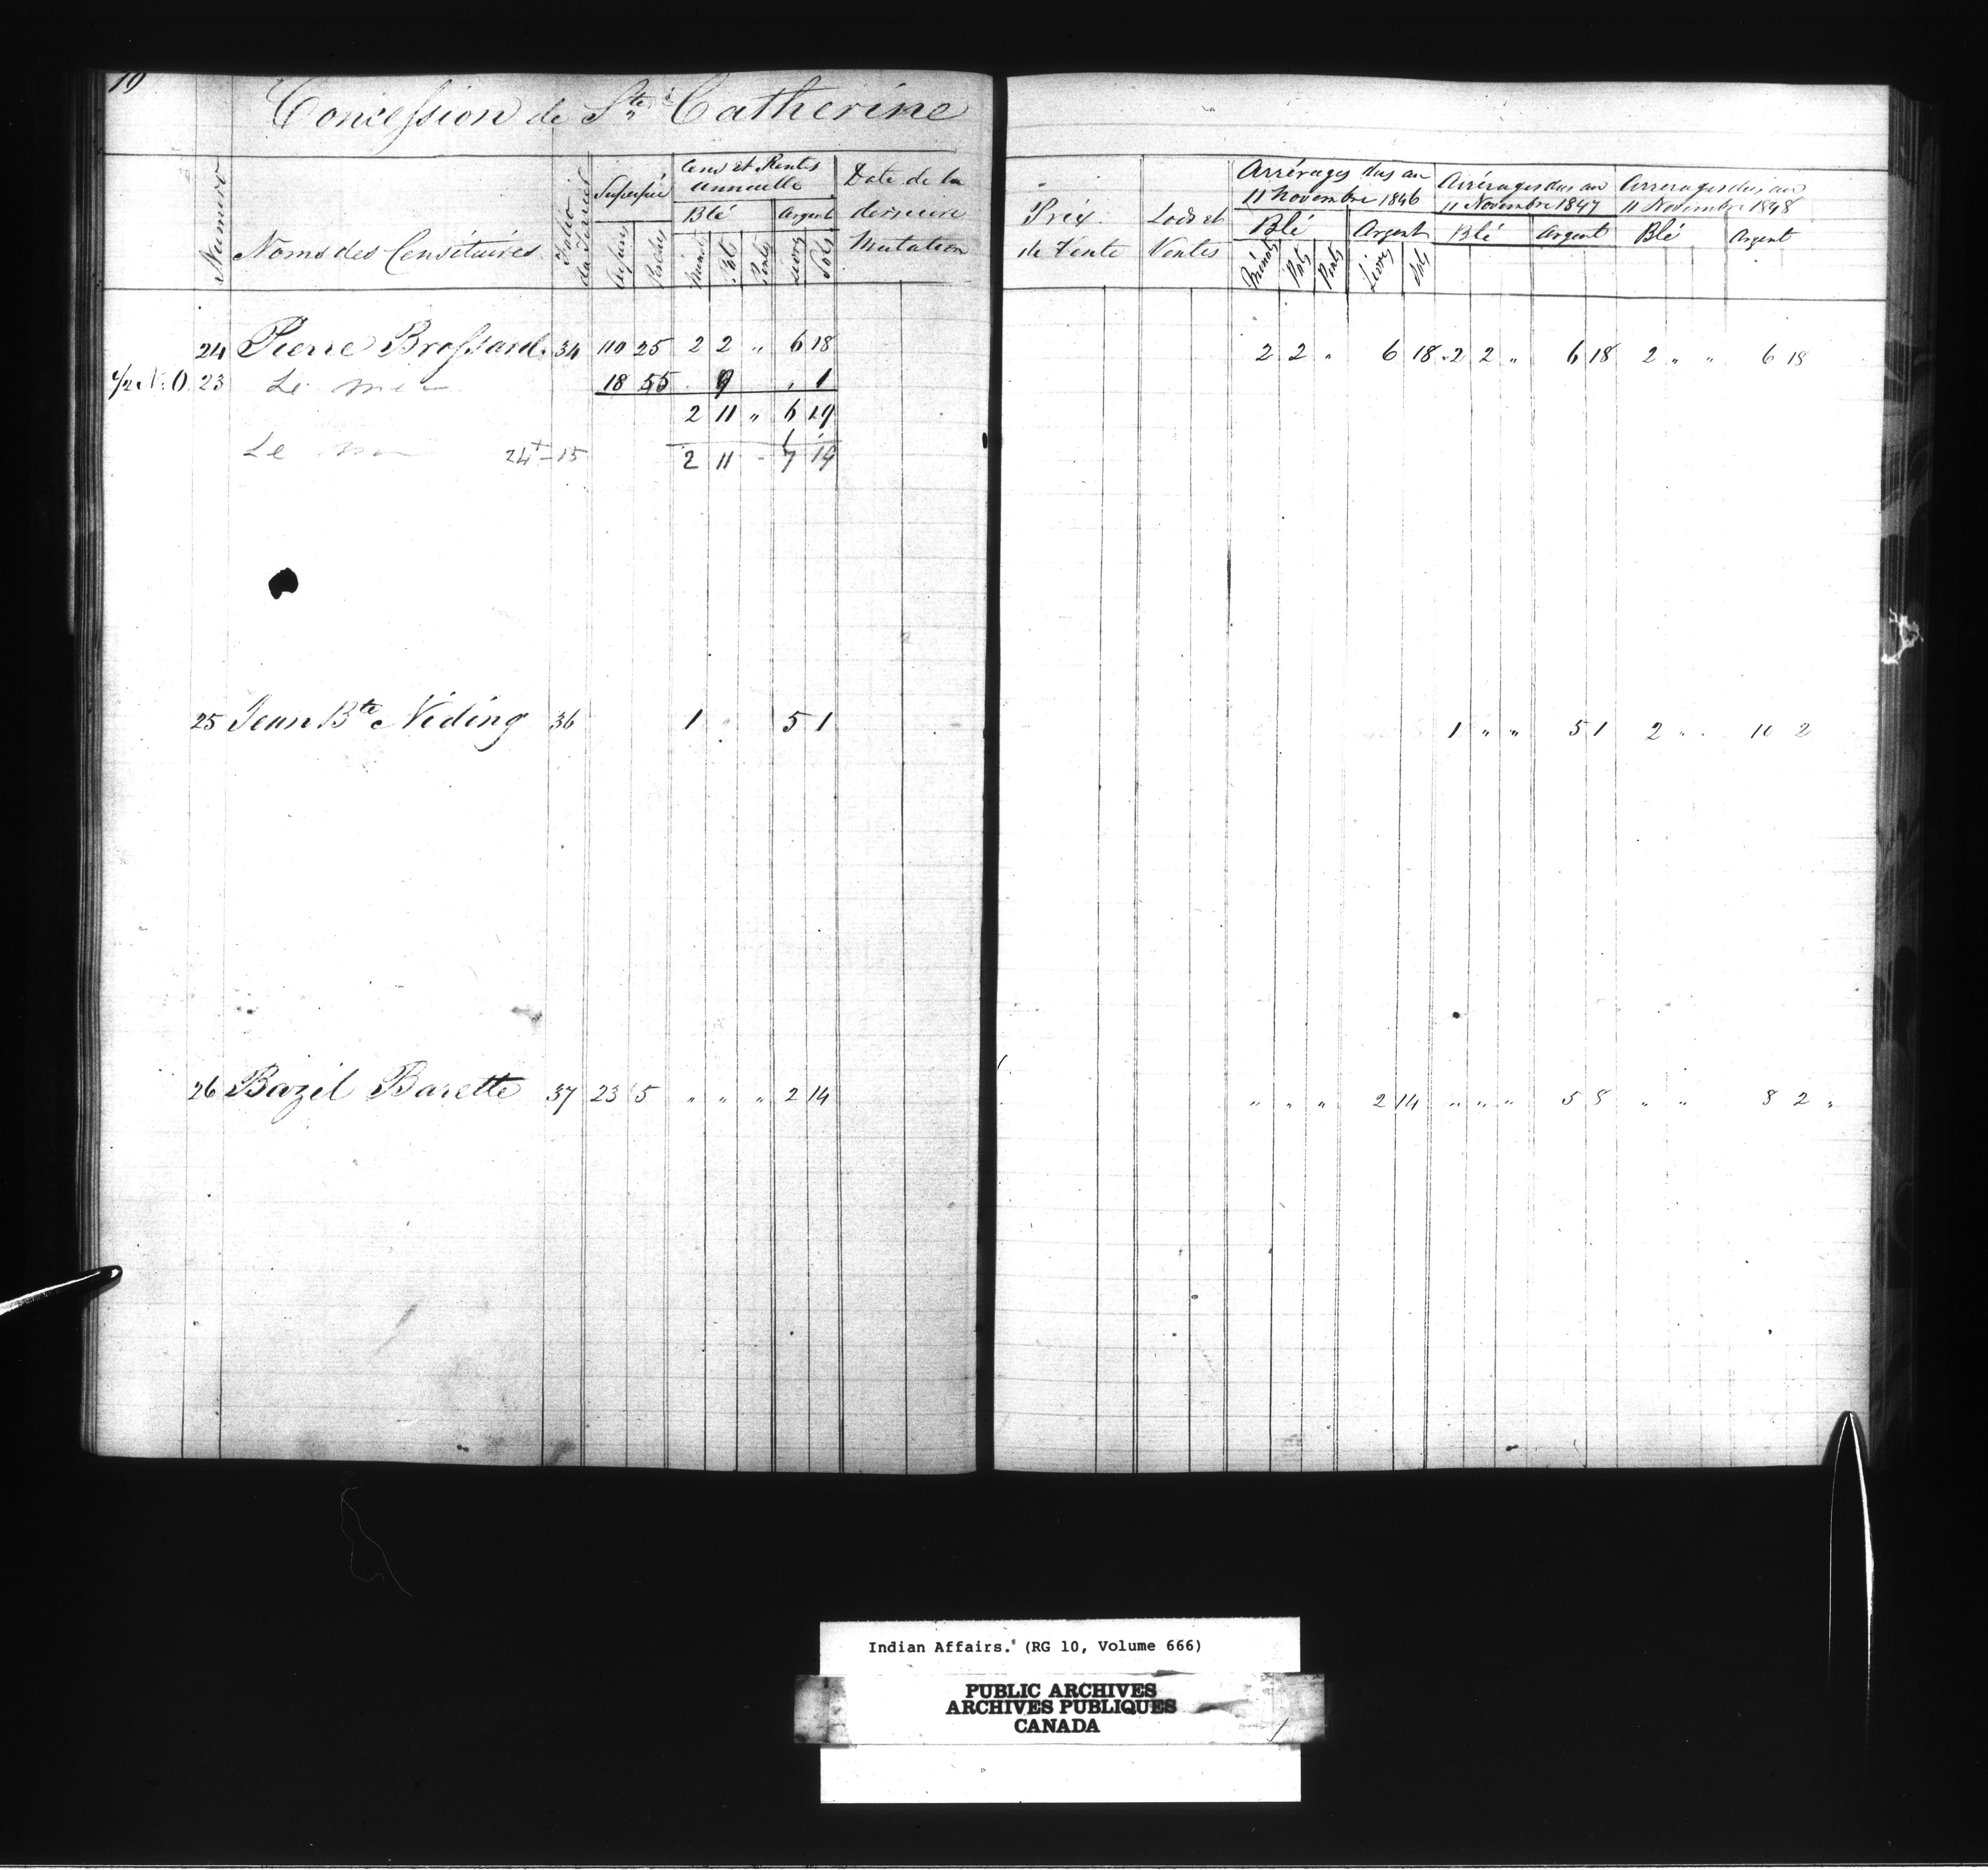 10
Concession de Ste Catherine
Numero
Noms des Censitaires
Folio du Terrier
Superficie
Arpens
Perches
Cens et Rentes annuelle
Blé
Argent
Minots
Pots
Pintes
Livres
Sols
Date de la derniere Mutation
Prix de Vente
Lods et Ventes
Arrérages dus au 11 Novembre 1846
Blé
Argent
Minots
Pots
Pintes
Livres
Sols
Arrérages dus au 11 Novembre 1847
Blé
Argent
Arrerages dus au 11 Novembre 1848
Blé
Argent
24 Pierre Brossard 34 110 25 2 2 " 6 18 2 2 " 6 18 2 2 " 6 18 2 " " 6 18
1/2 N. O. 23 Le 18 55 9 1
2 11 " 6 19
Le 24 - 15
2 11 - 7 19
25 Jean Bte Niding 36 1 5 1 1 " " 5 1 2 10 2
26 Bazil Barette 37 23 5 " " " 2 14 " " " 2 14 " " " 5 8 " " 8 2
Indian Affairs. (RG 10, Volume 666)
PUBLIC ARCHIVES
ARCHIVES PUBLIQUES
CANADA